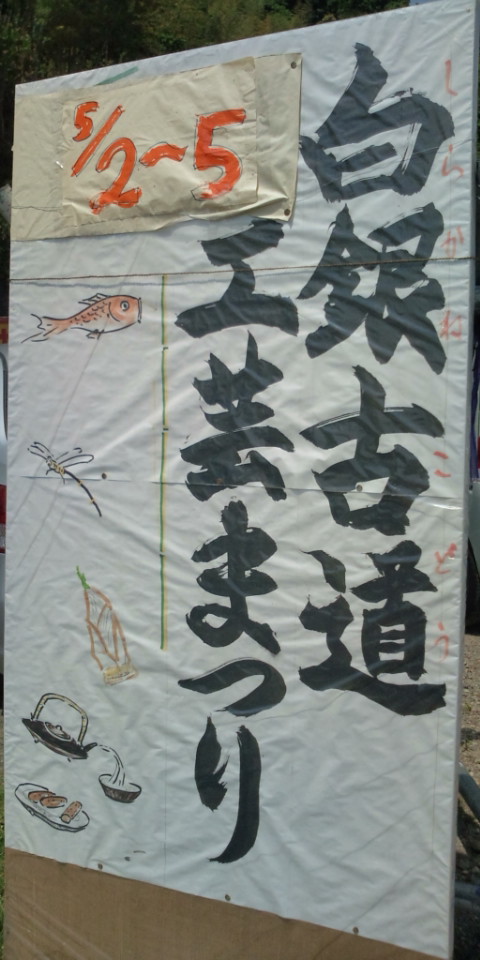 白銀古道
しらかねこどう
工芸まつり
5/2~5